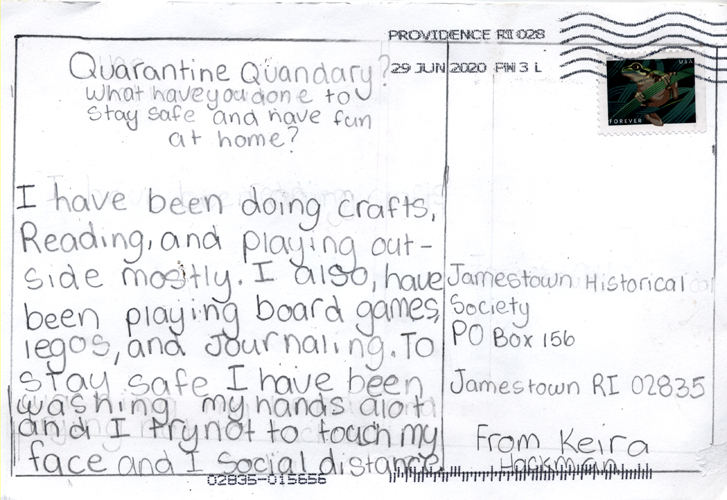 PROVIDENCE RI 028
29 JUN 2020 PM 3 L
USA
FOREVER
Quarantine Quandary?
What have you done to
stay safe and have fun
at home?
I have been doing crafts,
Reading, and playing out-
side mostly. I also, have
been playing board games,
legos, and Journaling. To
stay safe I have been
washing my hands alot
and I try not to touch my
face and I social distance
Jamestown Historical
Society
PO Box 156
Jamestown RI 02835
From Keira
02835-015656